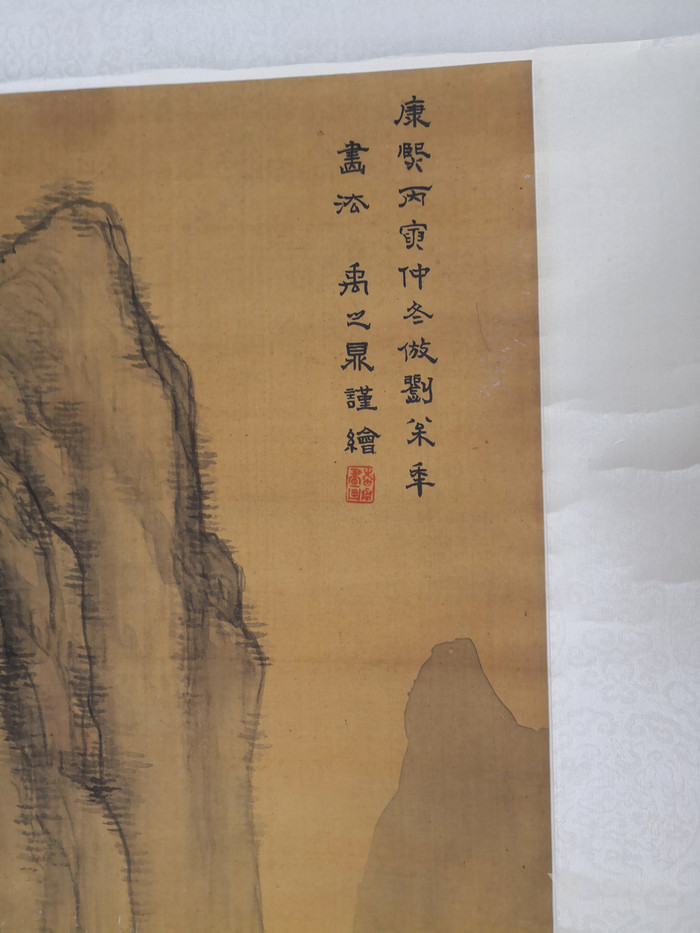 康熙丙寅仲冬倣劉松年
畫法 禹之鼎謹繪